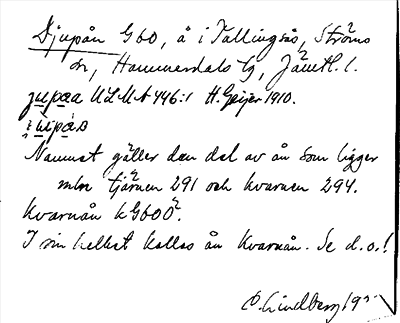 Djupån G60, å i Tullingsås, Ströms
sn, Hammerdals tg, Jämtl. l.
jupaa ULMA 446:1 H. Geijer 1910.
Namnet gäller den del av ån som ligger
mln tjärnen 291 och kvarnen 294.
Kvarnån kG600².
I sin helhet kallas ån Kvarnån. Se d.o.!
O. Lindberg 19